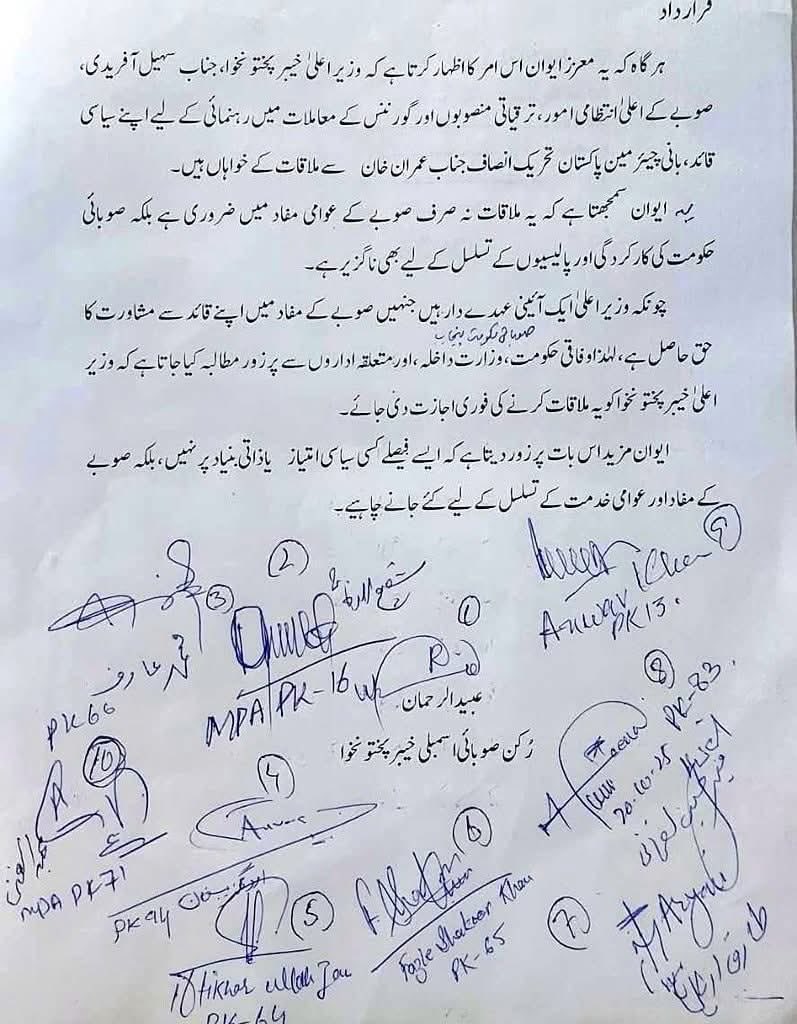 قرارداد
ہر گاہ کہ یہ معزز ایوان اس امر کا اظہار کرتا ہے کہ وزیر اعلیٰ خیبر پختونخوا، جناب سہیل آفریدی،
صوبے کے اعلیٰ انتظامی امور، ترقیاتی منصوبوں اور گورننس کے معاملات میں رہنمائی کے لیے اپنے سیاسی
قائد، بانی چیئرمین پاکستان تحریک انصاف جناب عمران خان سے ملاقات کے خواہاں ہیں۔
یہ ایوان سمجھتا ہے کہ یہ ملاقات نہ صرف صوبے کے عوامی مفاد میں ضروری ہے بلکہ صوبائی
حکومت کی کارکردگی اور پالیسیوں کے تسلسل کے لیے بھی ناگزیر ہے۔
چونکہ وزیر اعلیٰ ایک آئینی عہدے دار ہیں جنہیں صوبے کے مفاد میں اپنے قائد سے مشاورت کا
صوبائی حکومت پنجاب
حق حاصل ہے، لہٰذا وفاقی حکومت، وزارت داخلہ، اور متعلقہ اداروں سے پرزور مطالبہ کیا جاتا ہے کہ وزیر
اعلیٰ خیبر پختونخوا کو یہ ملاقات کرنے کی فوری اجازت دی جائے۔
ایوان مزید اس بات پر زور دیتا ہے کہ ایسے فیصلے کسی سیاسی امتیاز یا ذاتی بنیاد پر نہیں، بلکہ صوبے
کے مفاد اور عوامی خدمت کے تسلسل کے لیے کئے جانے چاہیے۔
9
Khan
Anwar
PK 13.
2
3
محمد عارف
PK 66
MPA PK-16
1
عبید الرحمان
رکن صوبائی اسمبلی خیبر پختونخوا
8
PK-83
20-10-25
10
MPA PK 71
4
PK 94
5
Iftikhar ullah Jan
PK-64
6
Fazle Shakoor Khan
PK-65
7
Aryani
طارق